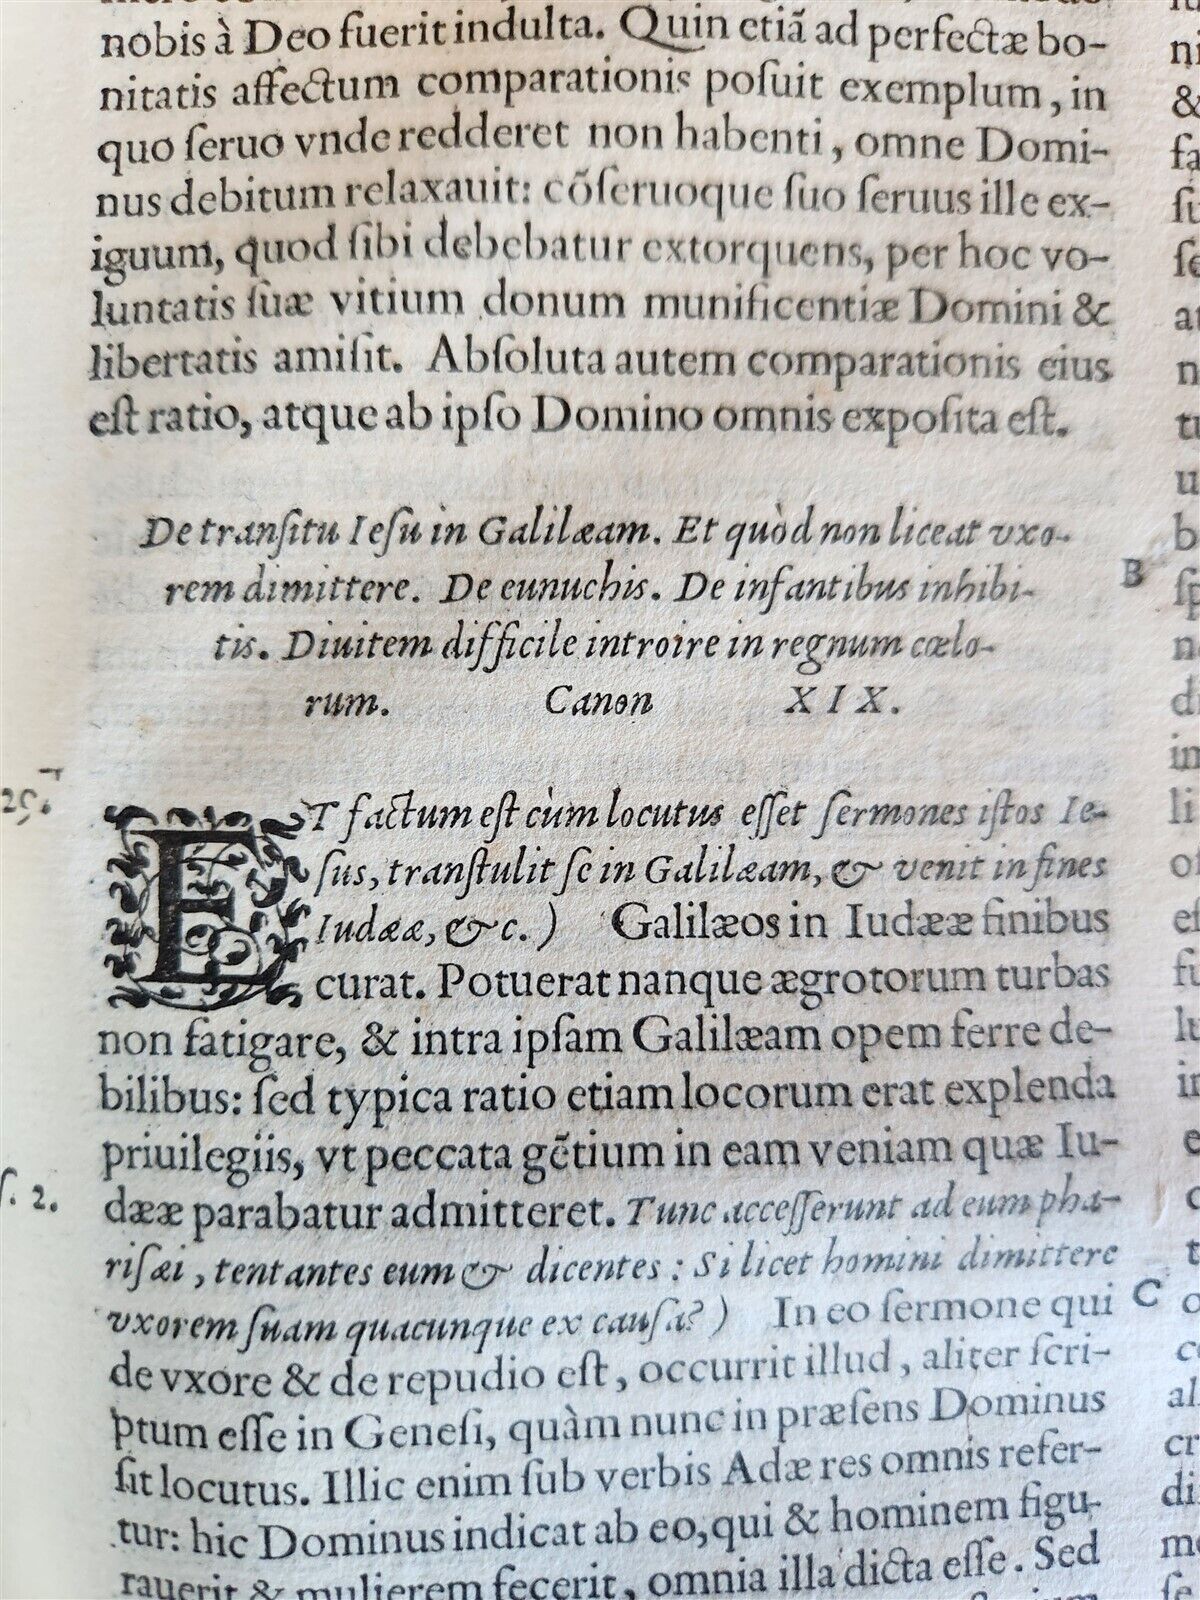 nobis à Deo fuerit indulta. Quin etiã ad perfectæ bo-
nitatis affectum comparationis poſuit exemplum, in
quo ſeruo vnde redderet non habenti, omne Domi-
nus debitum relaxauit: cõſeruoque ſuo ſeruus ille ex-
iguum, quod ſibi debebatur extorquens, per hoc vo-
luntatis ſuæ vitium donum munificentiæ Domini &
libertatis amiſit. Abſoluta autem comparationis eius
eſt ratio, atque ab ipſo Domino omnis expoſita eſt.
De tranſitu Ieſu in Galilæam. Et quòd non liceat vxo-
rem dimittere. De eunuchis. De infantibus inhibi-
tis. Diuitem difficile introire in regnum cœlo-
rum. Canon XIX.
B
ET factum eſt cùm locutus eſſet ſermones iſtos Ie-
ſus, tranſtulit ſe in Galilæam, & venit in fines
Iudææ, &c.) Galilæos in Iudææ finibus
curat. Potuerat nanque ægrotorum turbas
non fatigare, & intra ipſam Galilæam opem ferre de-
bilibus: ſed typica ratio etiam locorum erat explenda
priuilegiis, vt peccata gẽtium in eam veniam quæ Iu-
dææ parabatur admitteret. Tunc acceſſerunt ad eum pha-
riſæi, tentantes eum & dicentes: Si licet homini dimittere
vxorem ſuam quacunque ex cauſa?) In eo ſermone qui
C
de vxore & de repudio eſt, occurrit illud, aliter ſcri-
ptum eſſe in Geneſi, quàm nunc in præſens Dominus
ſit locutus. Illic enim ſub verbis Adæ res omnis refer-
tur: hic Dominus indicat ab eo, qui & hominem figu-
rauerit & mulierem fecerit, omnia illa dicta eſſe. Sed